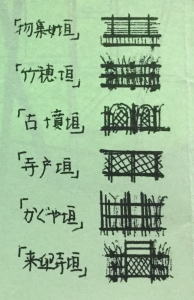 「物集女垣」
「竹穂垣」
「古墳垣」
「寺戸垣」
「かぐや垣」
「来迎寺垣」